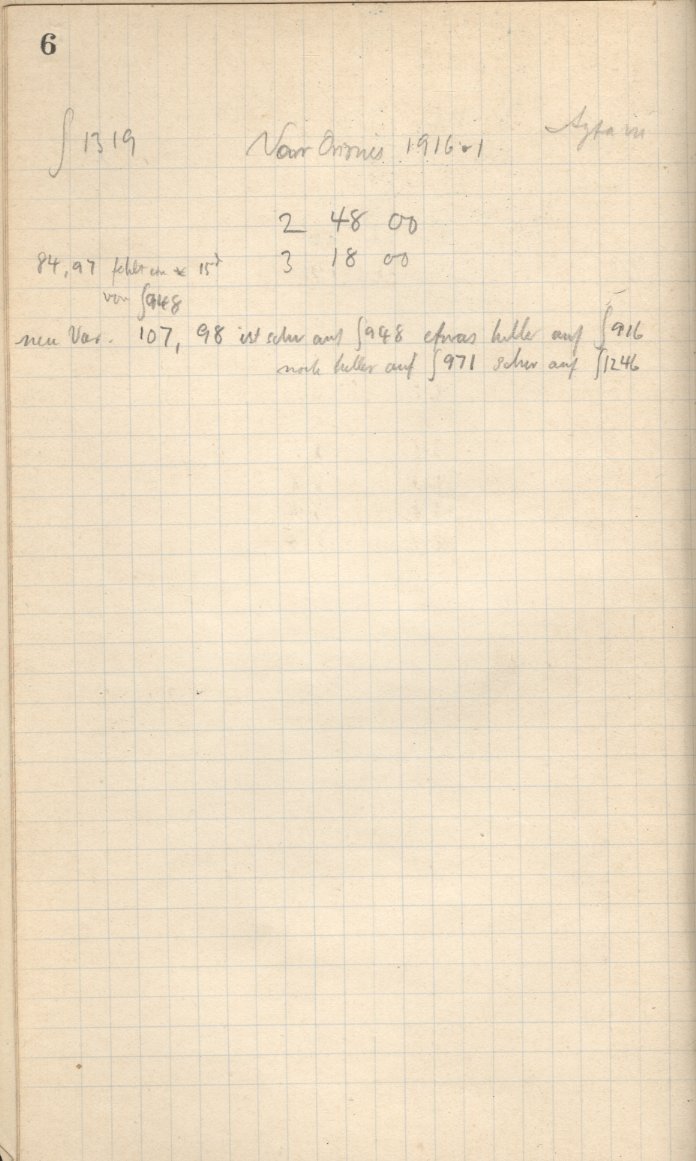 6
∫ 1319 Var Orionis 1916.1
2 48 00
84,97 fehlt ein * 15ᵈ 3 18 00
von ∫948
neu Var. 107, 98 ist schw auf ∫948 etwas heller auf ∫916
noch heller auf ∫971 schw auf ∫1246